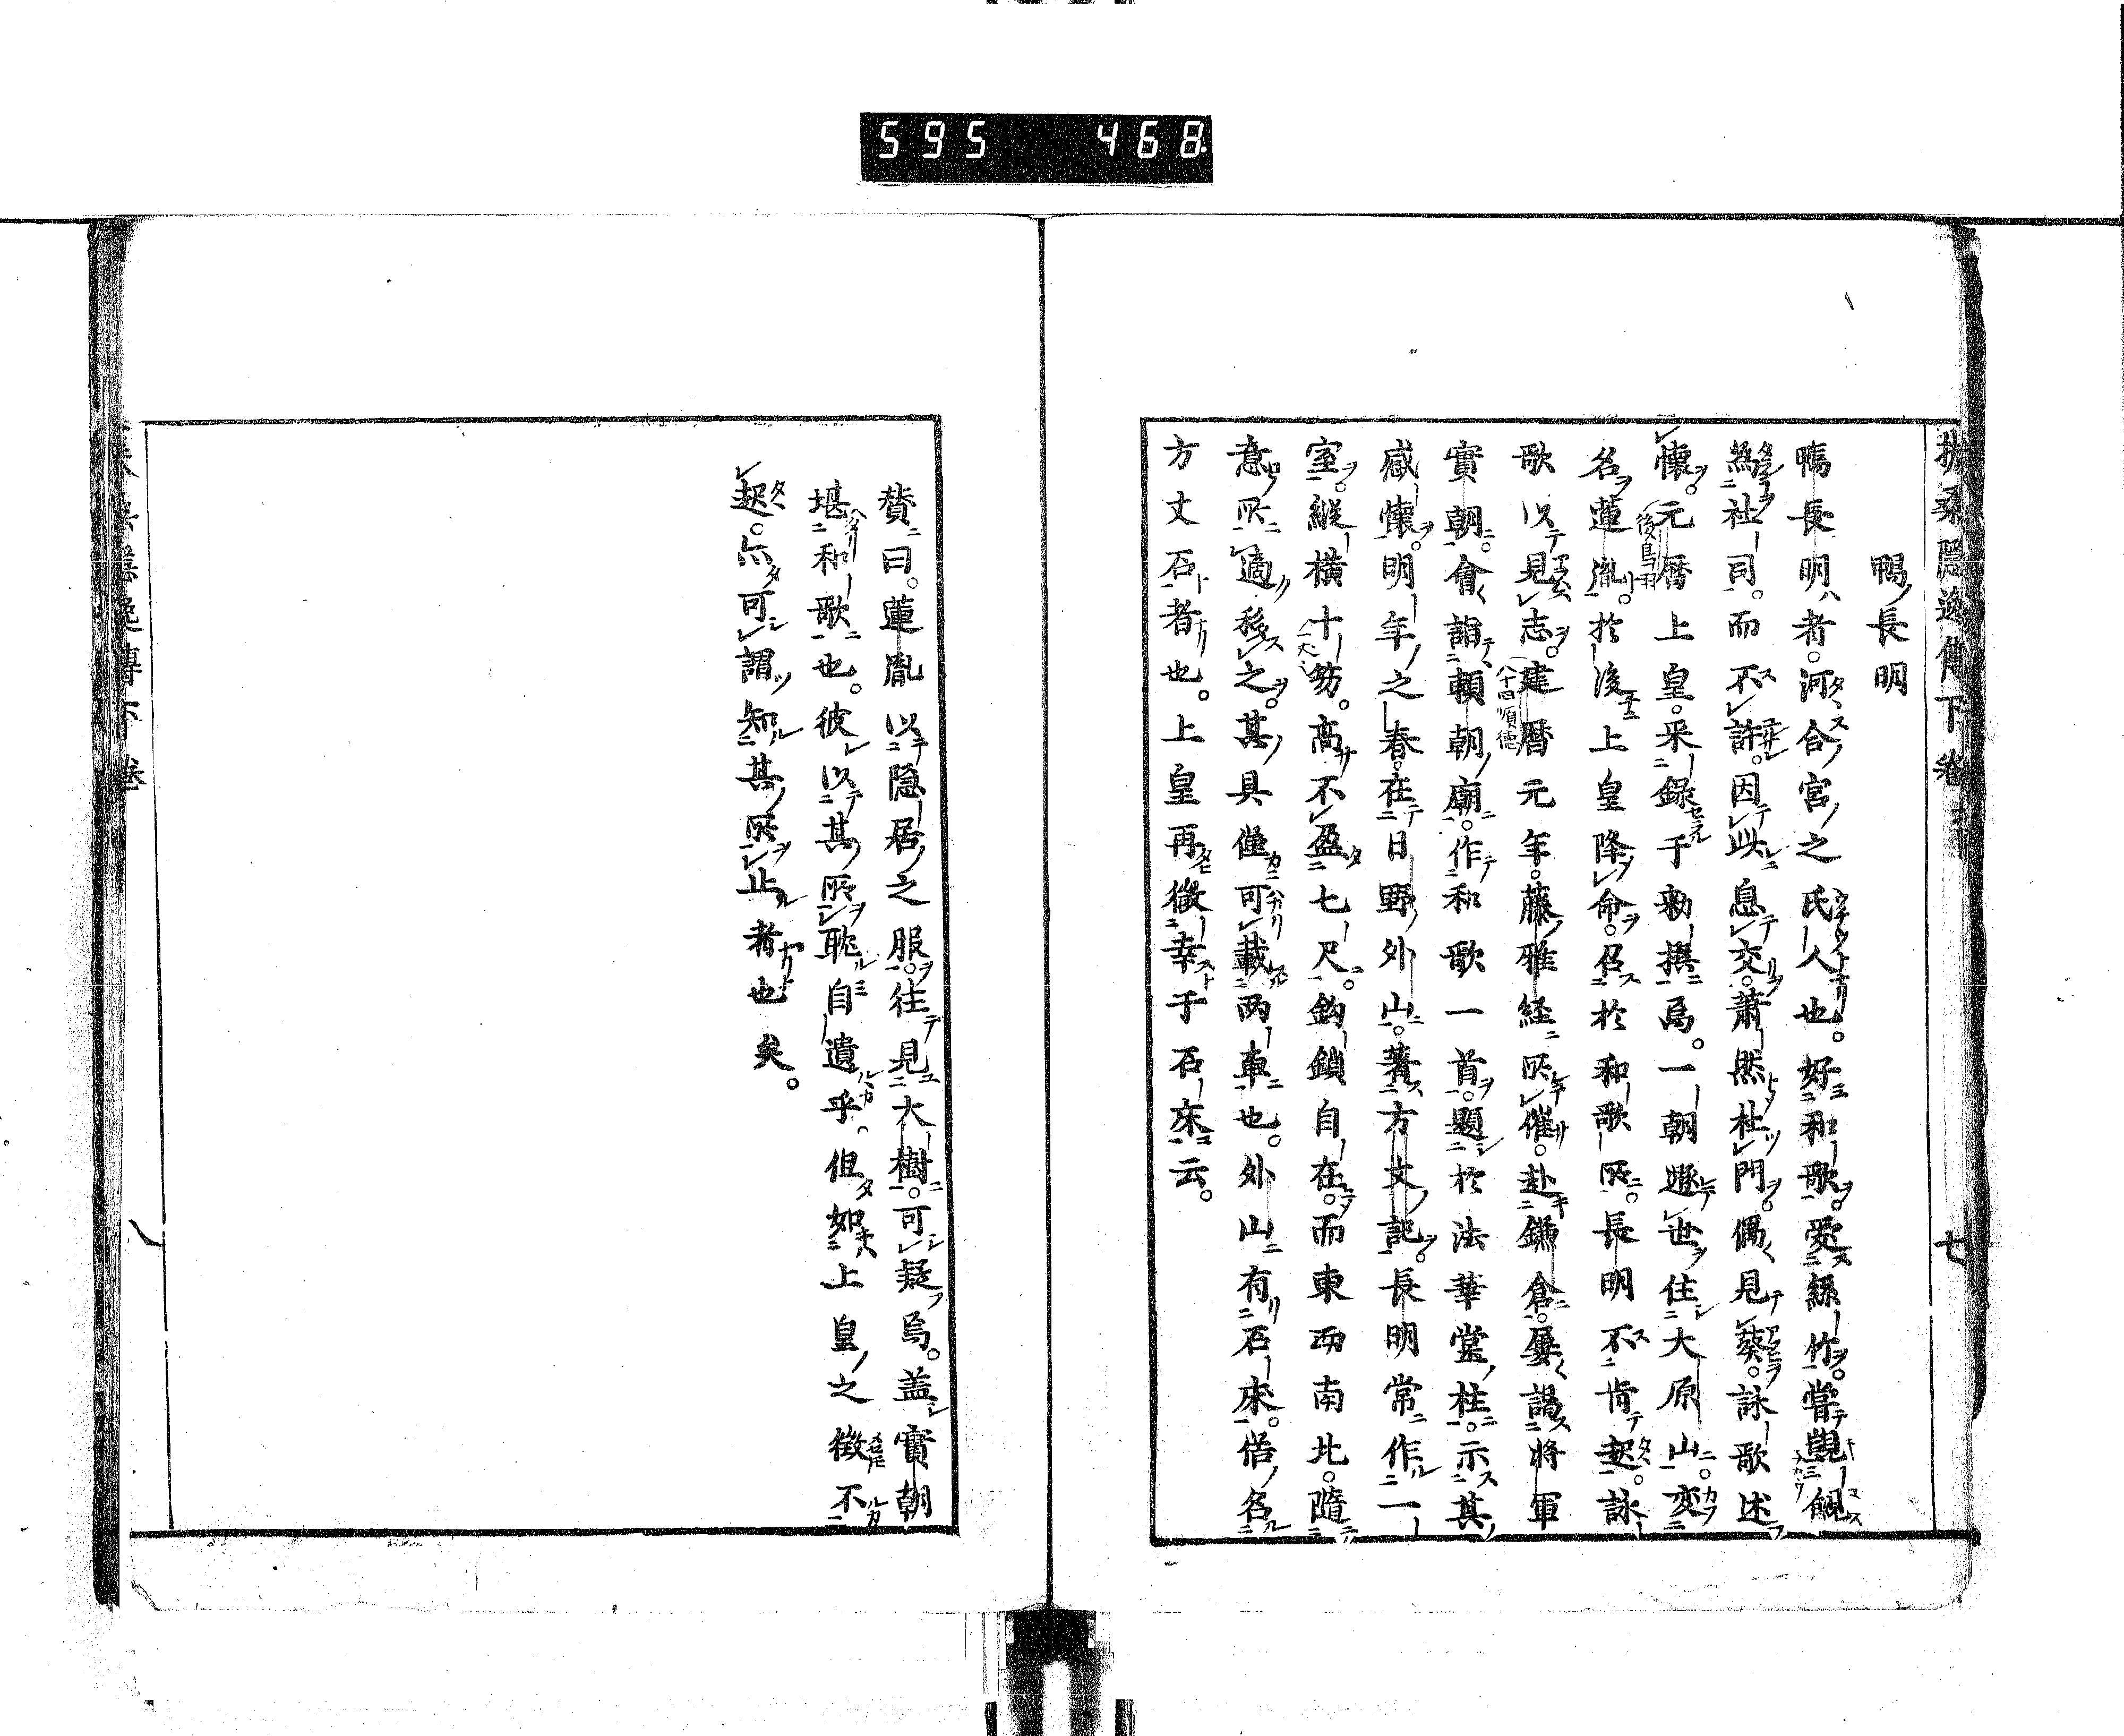 595 468
扶桑隱逸傳下卷 七
鴨長明
鴨長明者。河合宮之氏人也。好和歌。愛絲竹。嘗覬覦
為社司。而不許。因此息交。蕭然杜門。偶見葵。詠歌述
懷。元曆上皇。采錄于勅撰焉。一朝遯世住大原山。変
後鳥羽
名蓮胤。於後上皇降命。召於和歌所。長明不肯起。詠
歌以見志。建曆元年。藤雅経所催。赴鎌倉。屢謁將軍
八十四順德
實朝。會詣賴朝廟。作和歌一首。題於法華堂柱。示其
感懷。明年之春。在日野外山。著方丈記。長明常作一
室。縱橫十笏。高不盈七尺。鈎鎖自在。而東西南北。隨
一丈
意所適移之。其具僅可載两車也。外山有石床。俗名
方丈石者也。上皇再徵幸于石床云。
賛曰。蓮胤以隱居之服。往見大樹。可疑焉。盖實朝
堪和歌也。彼以其所耽自遣乎。但如上皇之徵不
起。亦可謂知其所止者也矣。
扶桑隱逸傳下卷